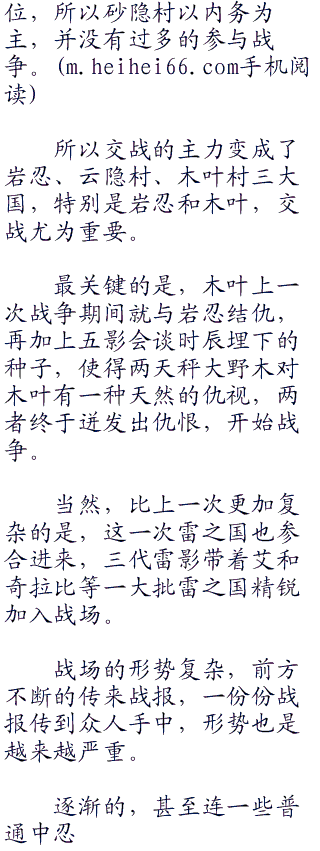 位，所以砂隐村以内务为
主，并没有过多的参与战
争。(m.heihei66.com手机阅
读)
所以交战的主力变成了
岩忍、云隐村、木叶村三大
国，特别是岩忍和木叶，交
战尤为重要。
最关键的是，木叶上一
次战争期间就与岩忍结仇，
再加上五影会谈时辰埋下的
种子，使得两天秤大野木对
木叶有一种天然的仇视，两
者终于迸发出仇恨，开始战
争。
当然，比上一次更加复
杂的是，这一次雷之国也参
合进来，三代雷影带着艾和
奇拉比等一大批雷之国精锐
加入战场。
战场的形势复杂，前方
不断的传来战报，一份份战
报传到众人手中，形势也是
越来越严重。
逐渐的，甚至连一些普
通中忍